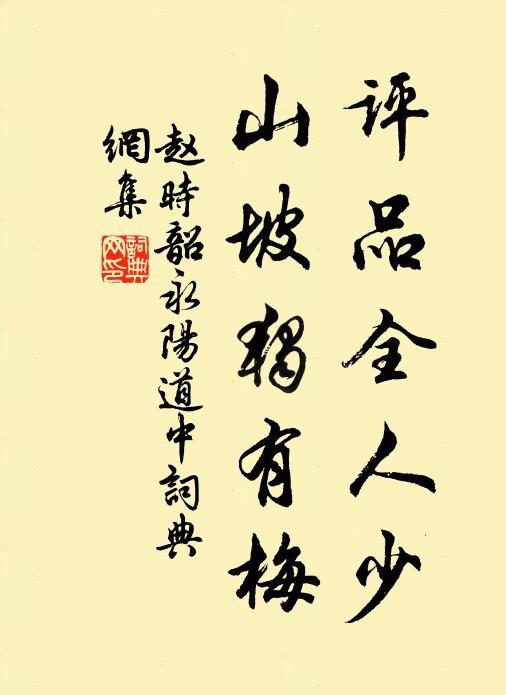 评品全人少
山坡獨有梅
赵時韶永陽道中詞典
網集
詞典
网印